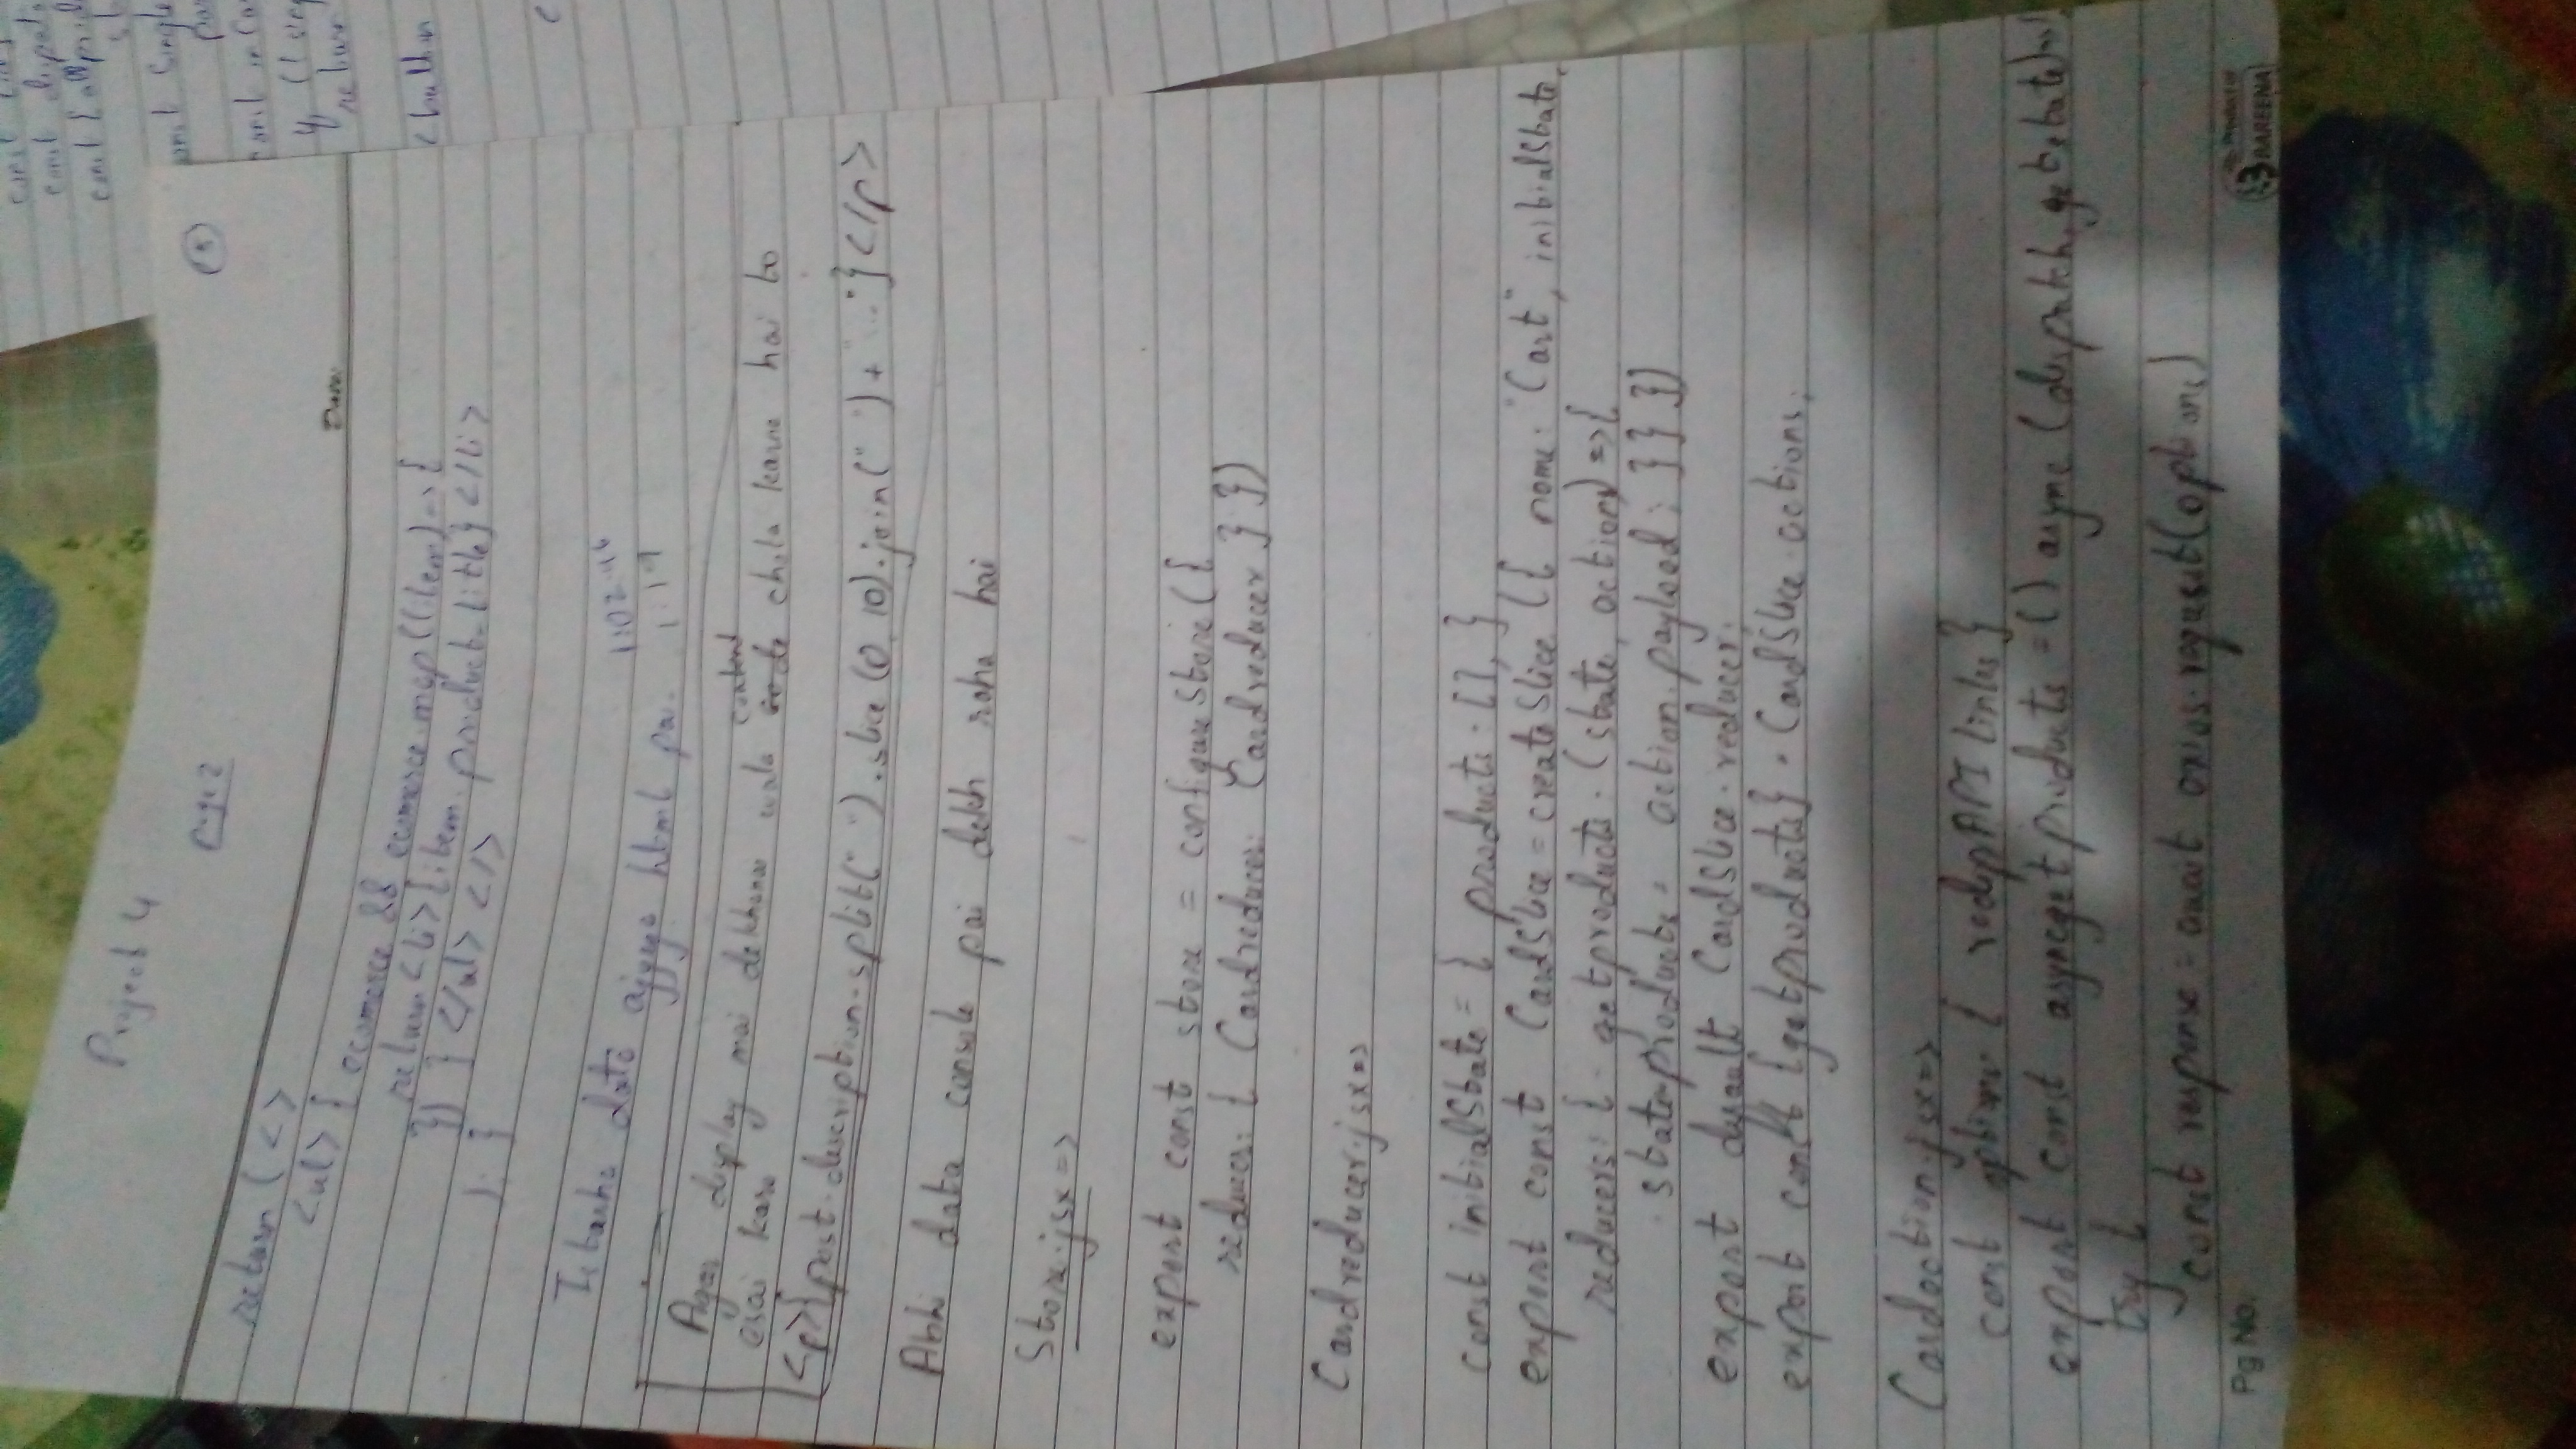 Project 4
Page 2
5
return ( < >
<ul> { ecomerce && ecomerce.map((item) => {
return <li>{item.product_title} </li>
}) } </ul> </>
); }
Date:
Is tarha data ajyega html pa.
1:02:46
1:19
Agar display mai dekhanai wala content code chota karna hai to
esai kare
<p>{post.description.split(" ").slice(0, 10).join(" ") + "..."}</p>
Abhi data console pai dekh raha hai
Store.jsx =>
export const store = configureStore({
reducer: { Cardreducer: Cardreducer } })
Cardreducer.jsx =>
const initialState = { products: [], }
export const CardSlice = createSlice ({ name: "Cart", initialState,
reducers: { getproducts: (state, action) => {
state.products = action.payload; } } })
export default CardSlice.reducer;
export const {getproducts} = CardSlice.actions;
Cardaction.jsx =>
const options { API links }
export const asyncgetproducts = () async (dispatch, getstate) =>
try {
const response = await axios.request(options)
Pg No.
BAREENA
const
const {allprod
const Single
const inCa
if (!sing
return
<button